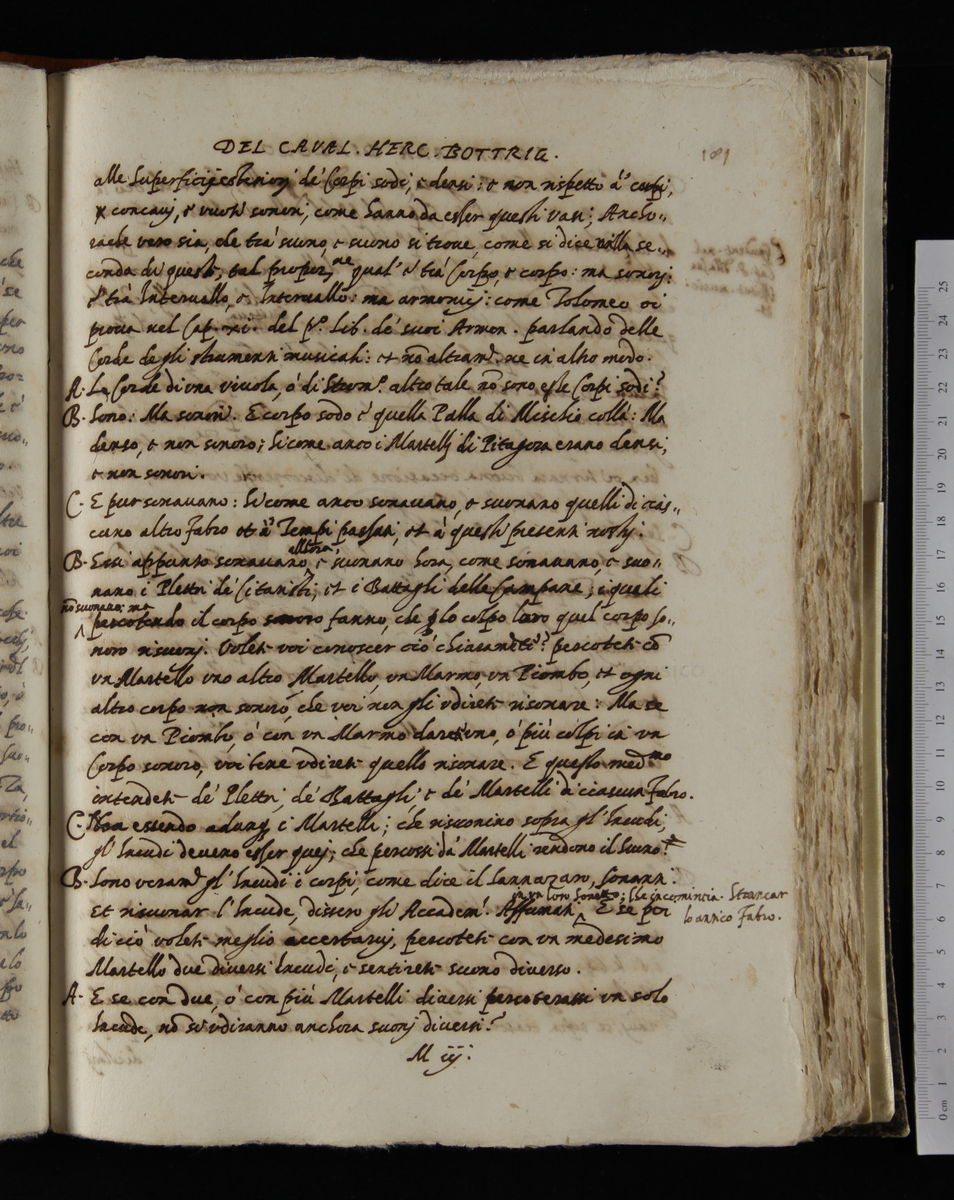 DEL CAVAL. HERC. BOTTRIG.
181
alle Superficij esteriori de' Corpi sodi, e densi: et non rispetto à corpi,
concavi, e vuoti sonori, come hanno da esser questi vasi; Ancho„
rache vero sia, che trà suono, e suono si trove, come si dice nella se„
conda di queste, tal propor.ne qual' è trà Corpo, e corpo: ma sonorj:
e trà Intervallo, e Intervallo: ma armonicj: come Tolomeo ci
prova nel Cap. del p.o Lib. de' suoi Armon. parlando delle
Corde degli strumenti musicali: et nō altram.te ne in altro modo.
A. Le Corde di una vivola, ò di Strom.to altro tale nō sono esse Corpi sodi?
B. Sono: Ma sonori. E corpo sodo è quella Palla di Mischio colà: Ma
denso, e non sonoro; Si come anco i Martellj di Pitagora erano densi,
e non sonori.
C. E pur sonavano: Si come anco sonavano, e suonano quelli di cias„
cuno altro fabro et à Tempi passati, et à questi presenti nostri.
B. Essi appunto sonavano allora, e suonano hora, come sonavano, e suo„
nano i Plettri de' Citaristi; et i Battagli delle Campane; i quali
nō suonano; ma
percotendo il corpo sonoro fanno, che p lo colpo loro quel corpo so„
noro risuonj. Volete voi conoscer ciò chiaramēte? percotete cō
un Martello uno altro Martello, un Marmo, un Piombo, et ogni
altro corpo non sonoro, che voi non gli udirete risonare: Ma se
con un Piombo, ò con un Marmo darete uno, ò più colpi in un
Corpo sonoro, voi bene udirete quello risonare. E questo med.mo
intendete de' Plettri, de' Battagli, e de' Martelli di ciascun fabro.
C. Non essendo adunq i Martelli; che risuonino sopra gl' Incudi;
gl' Incudi deveno esser quej; che percossi da' Martelli rendono il suono?
B. Sono veram.te gl' Incudi i corpi, come dice il Sannazaro, sonanti.
in un loro Sonetto; che incomincia. Stancar
Et risuonar l' Incude, dissero gli Accadem.ci Affumati E se poi
lo antico Fabro.
di ciò volete meglio accertarvj, percotete con un medesimo
Martello due diversi Incudi, e sentirete suono diverso.
A. E se con due, ò con più Martelli diversi percoterassi un solo
Incude, nō si udiranno anchora suonj diversi?
M iij: